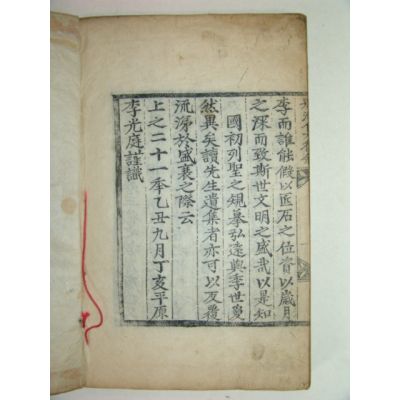 李而誰能假以匠石之位資以歲月
之深而致斯世文明之盛哉以是知
國初列聖之規摹弘遠與季世敻
然異矣讀先生遺集者亦可以反覆
流泝於盛衰之際云
上之二十一年乙丑九月丁亥平原
李光庭謹識